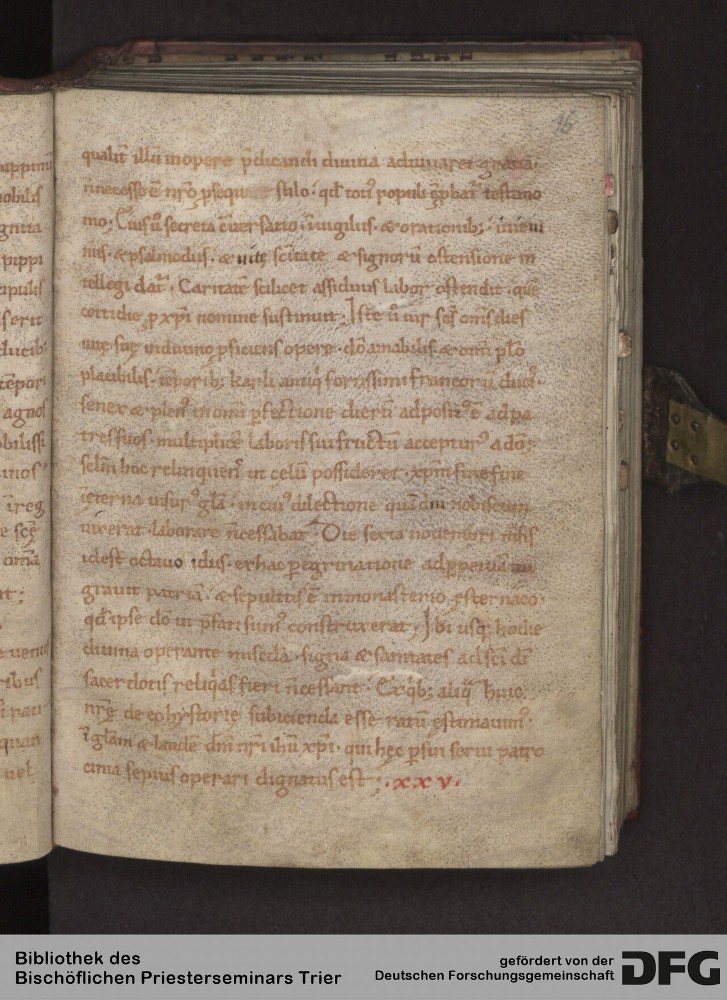 46
qualit̄ illū in opere p̄dicandi divina adiuuaret gratia.
n̄ necesse ē nr̄o p̄sequi stilo. qđ toti᾽ populi ꝓbat᾽ testimo
nio; Cuius ū secreta c̄uersatio. in uigilus. & orationib;. in ieiu
niis. & psalmodiis. & uitę sc̄itate & signorū ostensione in
tellegi dat᾽. Caritatē scilicet assiduus labor ostendit. quē
cottidie ꝓ xp̄i nomine sustinuit. Iste ū uir sc̄s oms̄ dies
uitę suę in diuino ꝓficiens opere. dō amabilis. & omī pl̄o
placibilis. tēporib; karli antiqi fortissimi francorū ducis.
senex & plen᾽ in omi ꝑfectione dierū adposit᾽ ē ad pa
tres suos. multiplicē laboris sui fructū acceptur᾽ a dō;
sclm̄ hoc relinquens ut celū possideret. xpm̄ sine fine
in ęterna uisur᾽ gl̄a. in cui᾽ dilectione quādiu nobiscum
uixerat laborare n̄ cessabat. Die sexta nouembri m̄sis
idest octauo idus. ex hac ꝑegrinatione ad ꝑpetuā mi
grauit patriā. & sepultus ē in monasterio ęsternaco.
qđ ipse dō ut p̄fati sum᾽ construxerat. Ibi usq; hodie
diuina operante misc̄dia. signa & sanitates ad sc̄i dī
sacerdotis reliqias fieri n̄ cessant. Ex qb; aliq huic
nr̄ę de eo hystorię subicienda esse ratū ęstimauim᾽.
in gl̄am & laudē dn̄i nr̄i ihū xp̄i. qui hęc ꝑ sui serui patro
cinia sepius operari dignatus est; .xxv.
Bibliothek des
Bischöflichen Priesterseminars Trier
gefördert von der
Deutschen Forschungsgemeinschaft
DFG